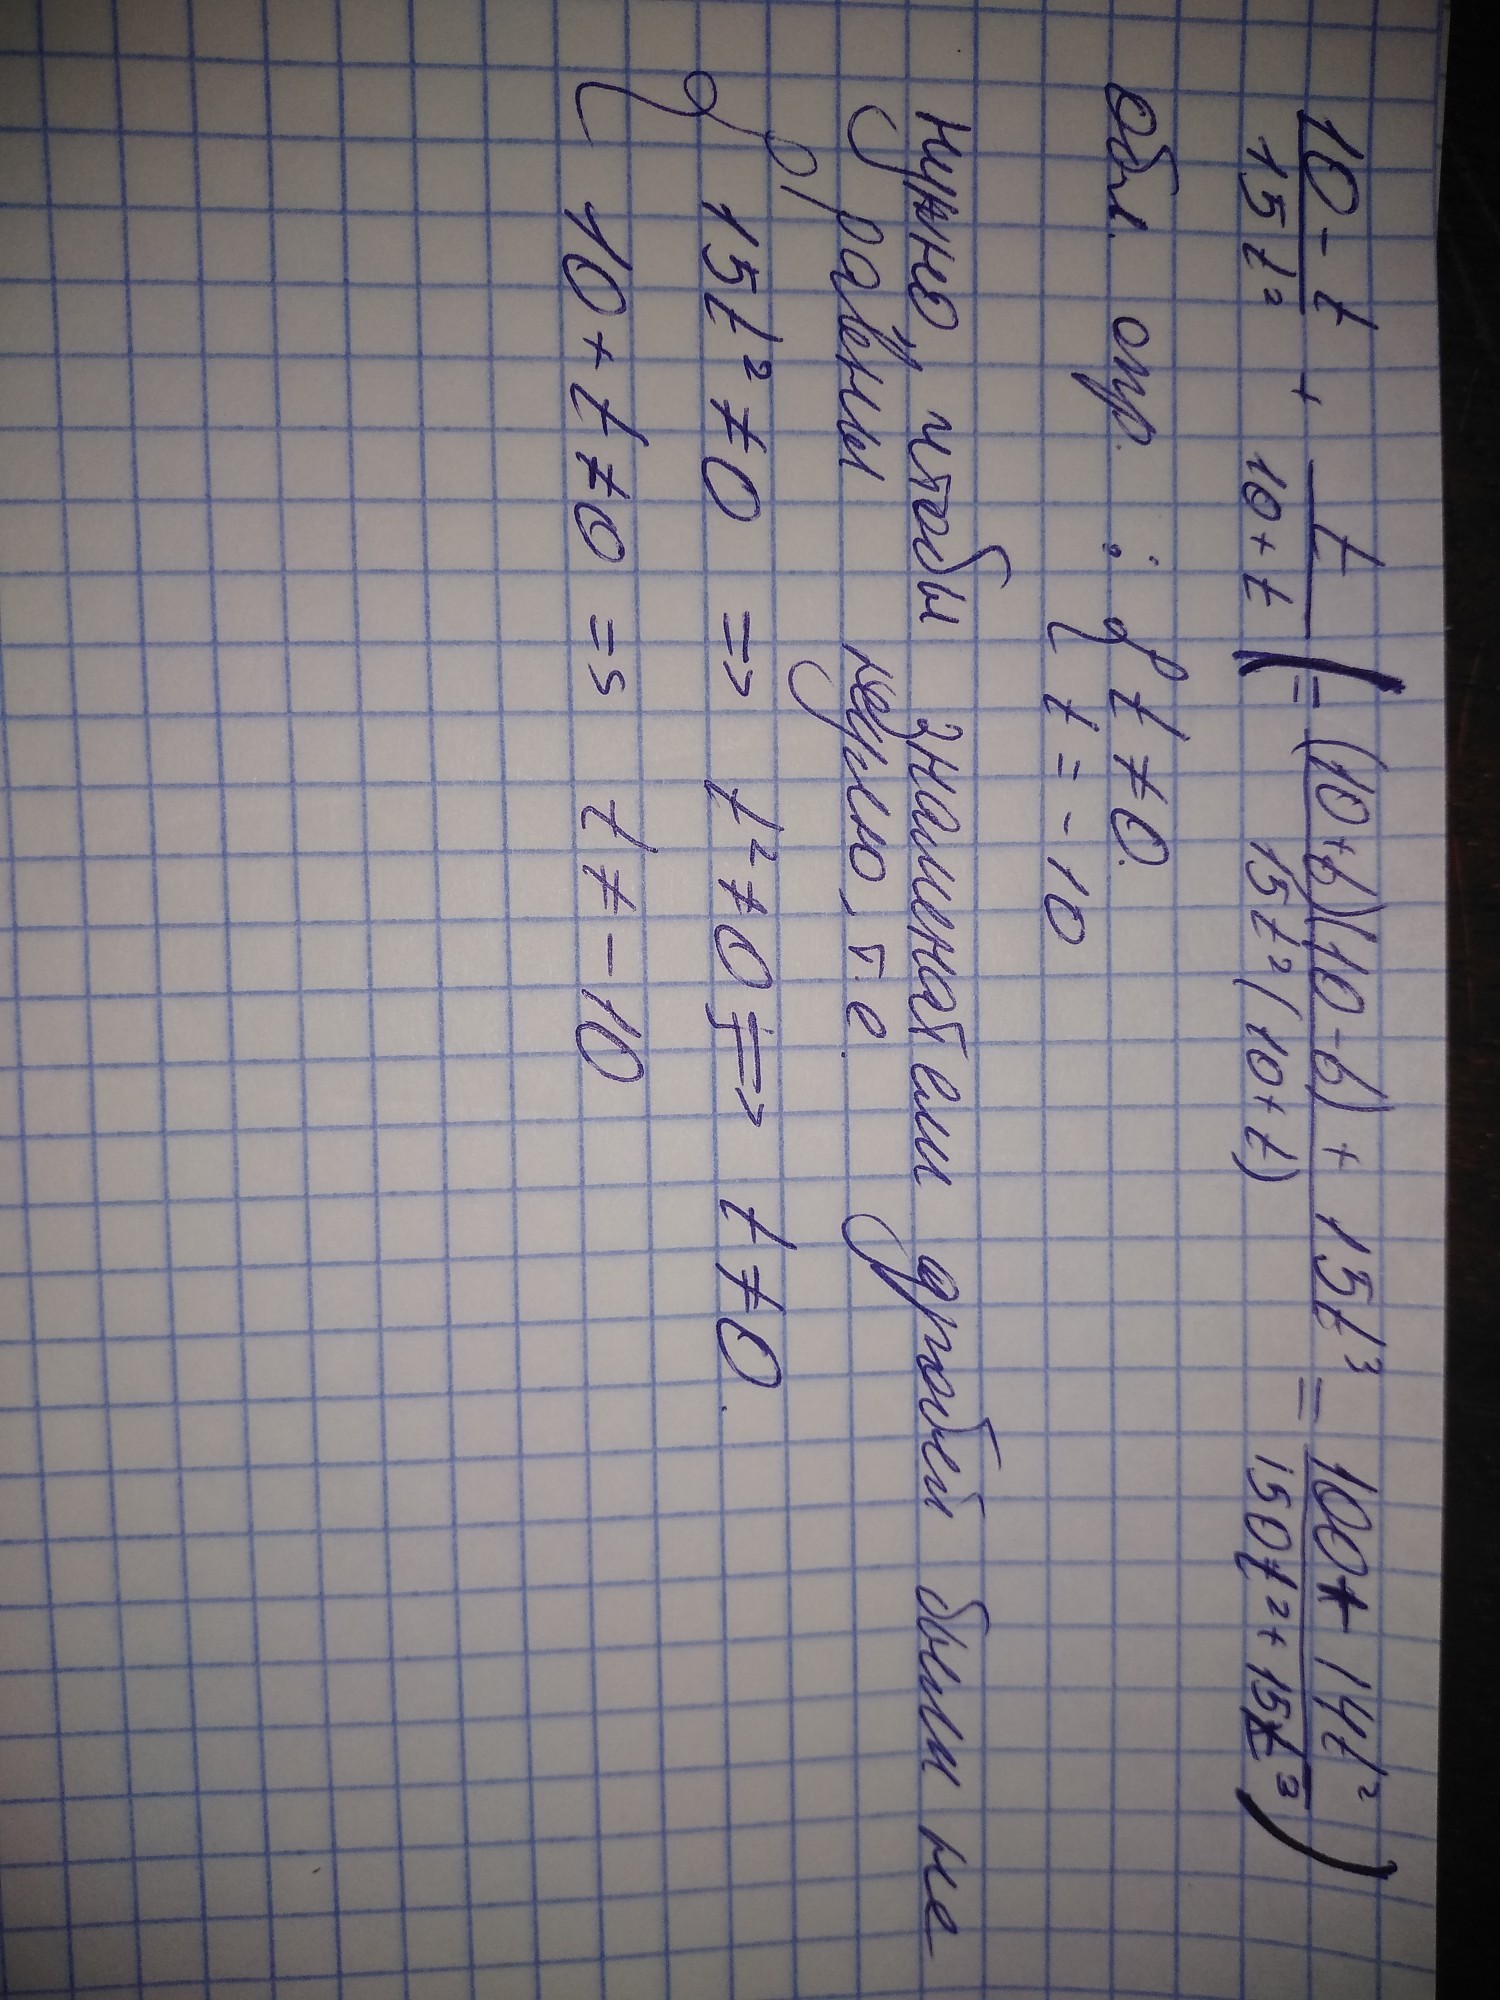 (10-t)/(15t²) + t/(10+t) (= ((10+t)(10-t) + 15t³)/(15t²(10+t)) = (100+14t²)/(150t²+15t³))
Обл. опр. : { t ≠ 0.
t = -10
Нужно, чтобы знаменатели дробей были не
равены нулю, т.е.
{ 15t² ≠ 0 => t² ≠ 0 => t ≠ 0.
10 + t ≠ 0 => t ≠ -10